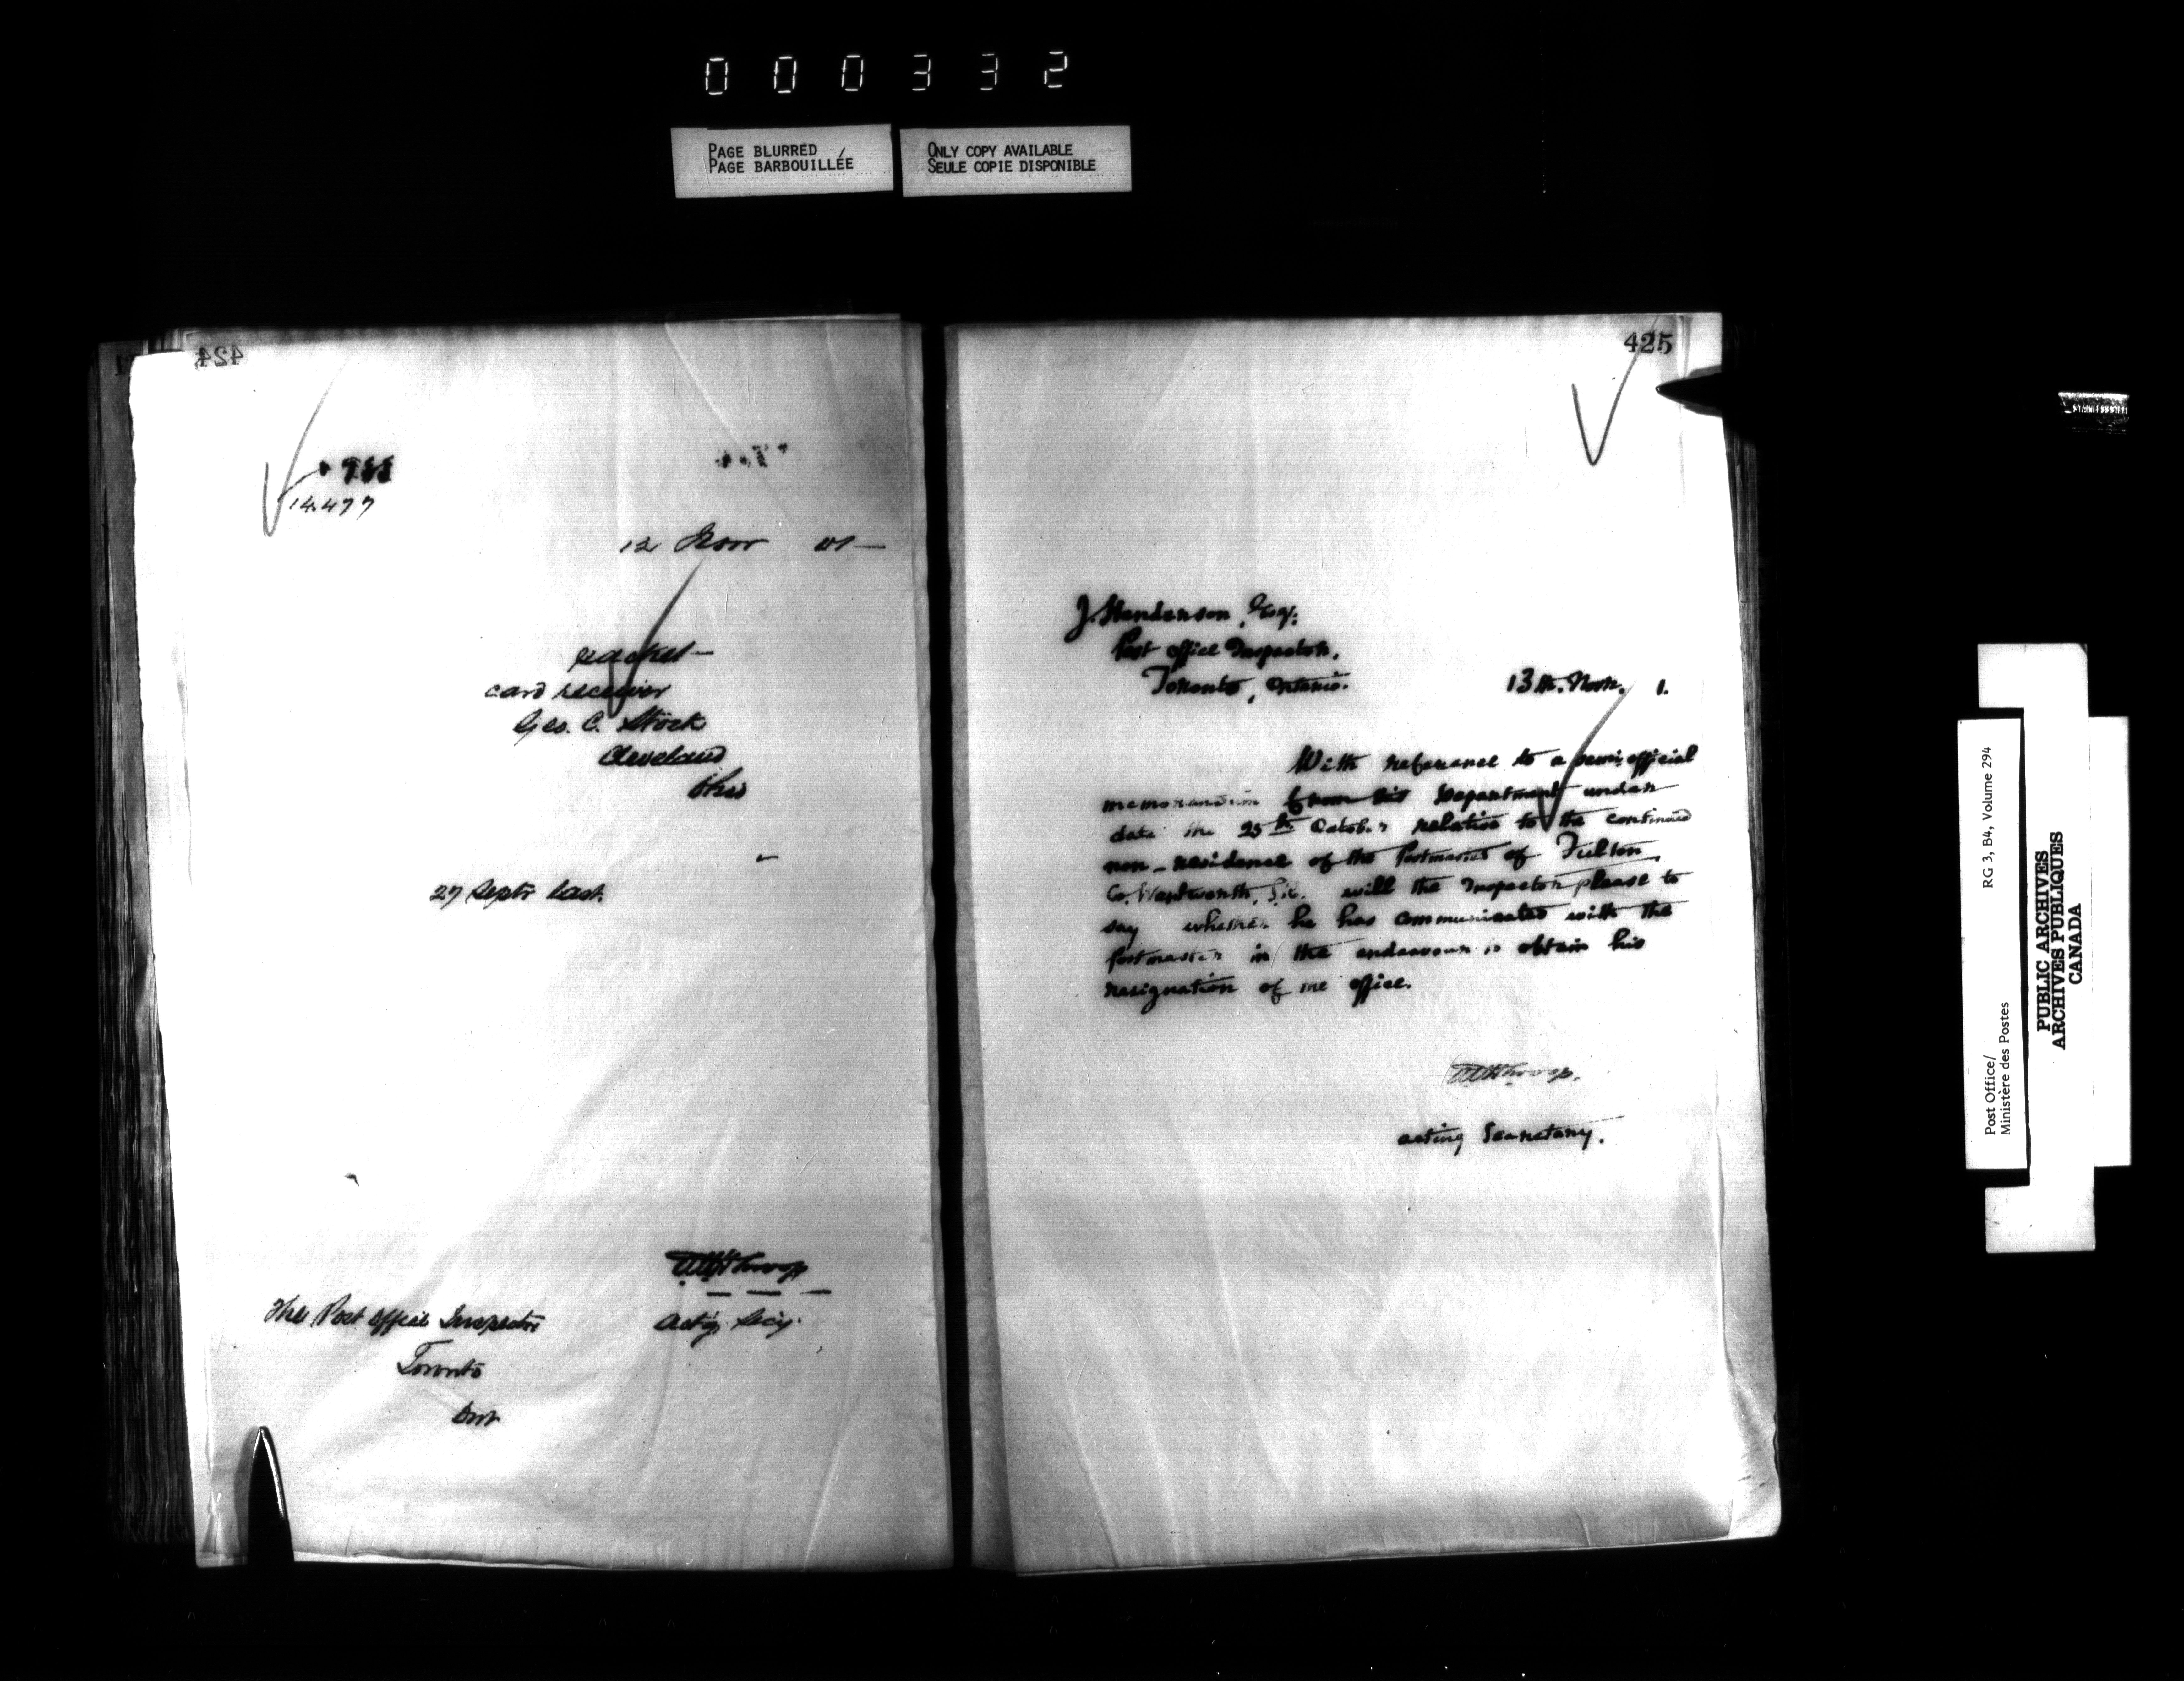 000332
PAGE BLURRED
PAGE BARBOUILLÉE
ONLY COPY AVAILABLE
SEULE COPIE DISPONIBLE
424
14.477
12 Novr 01 —
packet —
card receiver
Geo. C. Stock
Cleveland
Ohio
27 Septr last.
Actg. Secy.
The Post Office Inspector
Toronto
Ont
425
J. Henderson, Esq.
Post Office Inspector,
Toronto, Ontario.
13th. Novr. 1.
With reference to a semi-official
memorandum from this Department under
date the 25th October relative to the continued
non-residence of the Postmaster of Fulton,
Co. Wentworth, S.R. will the Inspector please to
say whether he has communicated with the
Postmaster in the endeavour to obtain his
resignation of the office.
Acting Secretary.
Post Office/
Ministère des Postes
RG 3, B4, Volume 294
PUBLIC ARCHIVES
ARCHIVES PUBLIQUES
CANADA